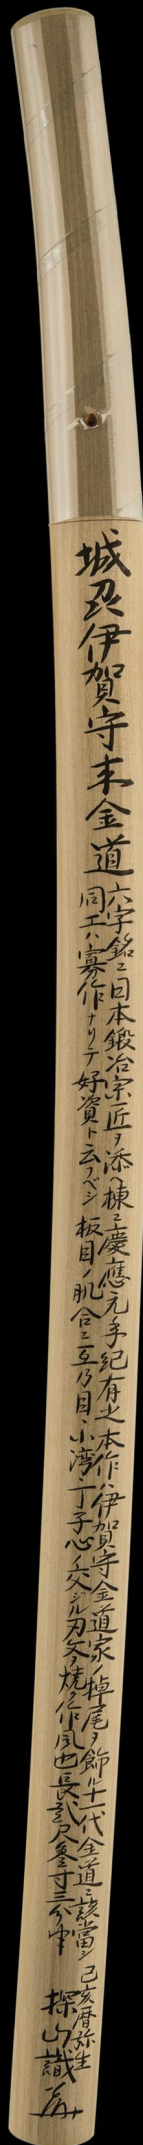 城州伊賀守来金道
六字銘ニ日本鍛冶宗匠ヲ添ヘ棟ニ慶應元年紀有之本作ハ伊賀守金道家ノ掉尾ヲ飾ル十一代金道ニ該當シ
同工ハ寡作ナリテ好資ト云フベシ 板目ノ肌合ニ互乃目、小湾、丁子心ノ交ジル刃文ヲ焼ク作風也 長貮尺参寸三分半
己亥暦弥生
探山識